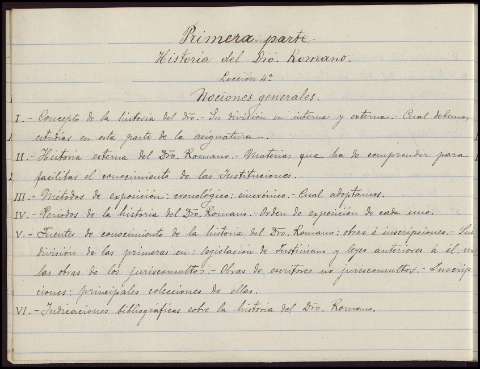 Primera parte.
Historia del Dro. Romano.
Lección 4ª
Nociones generales.
I.- Concepto de la historia del dro.- Su división en interna y externa.- Cual debemos
estudiar en esta parte de la asignatura.-
II.- Historia externa del Dro. Romano.- Materias que ha de comprender para
facilitar el conocimiento de las Instituciones.
III.- Métodos de exposición: cronológico; sincrónico.- Cual adoptamos.
IV.- Periodos de la historia del Dro. Romano.- Orden de exposición de cada uno.
V.- Fuentes de conocimiento de la historia del Dro. Romano; obras é inscripciones.- Sub
división de las primeras en: legislación de Justiniano y leyes anteriores á él, en
las obras de los jurisconsultos.- Obras de escritores no jurisconsultos.- Inscrip-
ciones; principales colecciones de ellas.
VI.- Indicaciones bibliográficas sobre la historia del Dro. Romano.